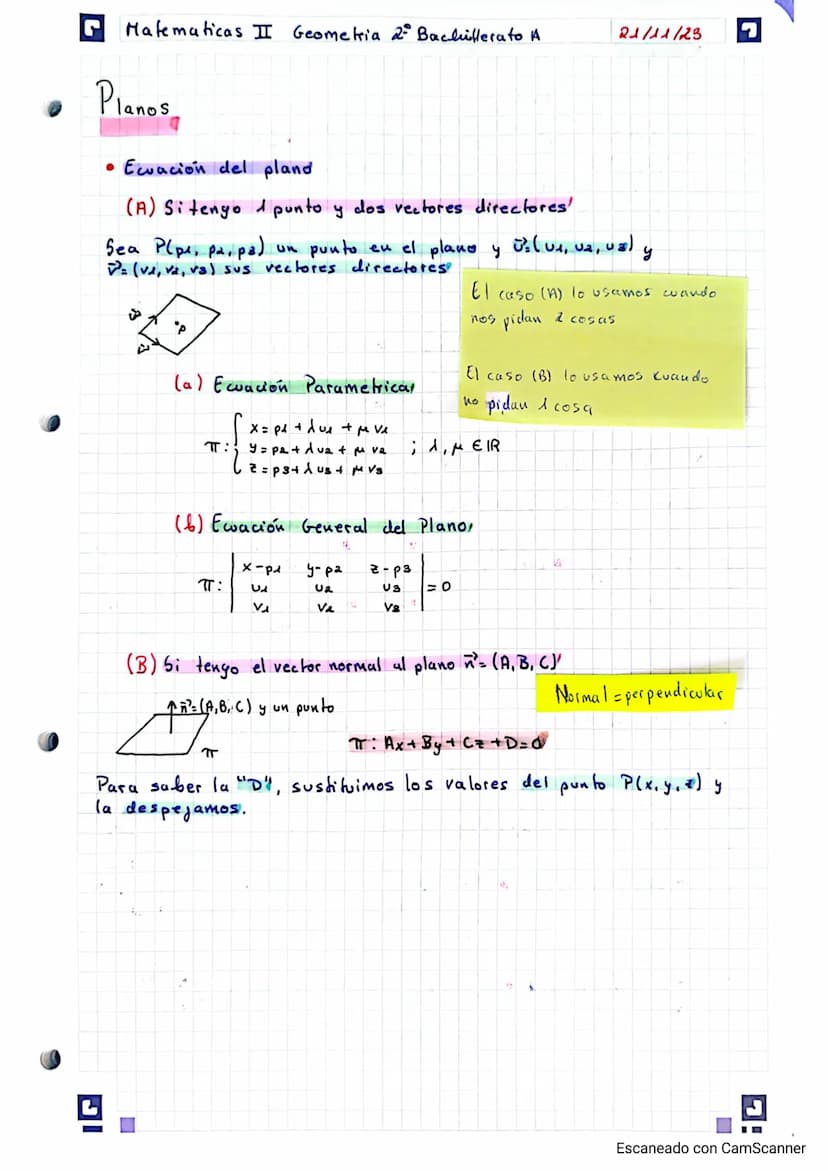 Matematicas II Geometria 2º Bachillerato A 21/11/23
Planos
• Ecuación del plano
(A) Si tengo 1 punto y dos vectores directores
Sea P(p1, p2, p3) un punto en el plano y u⃗=(u1, u2, u3) y
v⃗=(v1, v2, v3) sus vectores directores
El caso (A) lo usamos cuando
nos pidan 2 cosas
El caso (B) lo usamos cuando
no pidan 1 cosa
•P
(a) Ecuación Parametrica
π: { x = p1 + λu1 + μv1
y = p2 + λu2 + μv2 ; λ, μ ∈ IR
z = p3 + λu3 + μv3
(b) Ecuación General del Plano
π: | x-p1 y-p2 z-p3 |
| u1 u2 u3 | = 0
| v1 v2 v3 |
(B) Si tengo el vector normal al plano n⃗=(A, B, C)
Normal = perpendicular
n⃗=(A, B, C) y un punto
π
π: Ax + By + Cz + D = 0
Para saber la "D", sustituimos los valores del punto P(x, y, z) y
la despejamos.
Escaneado con CamScanner